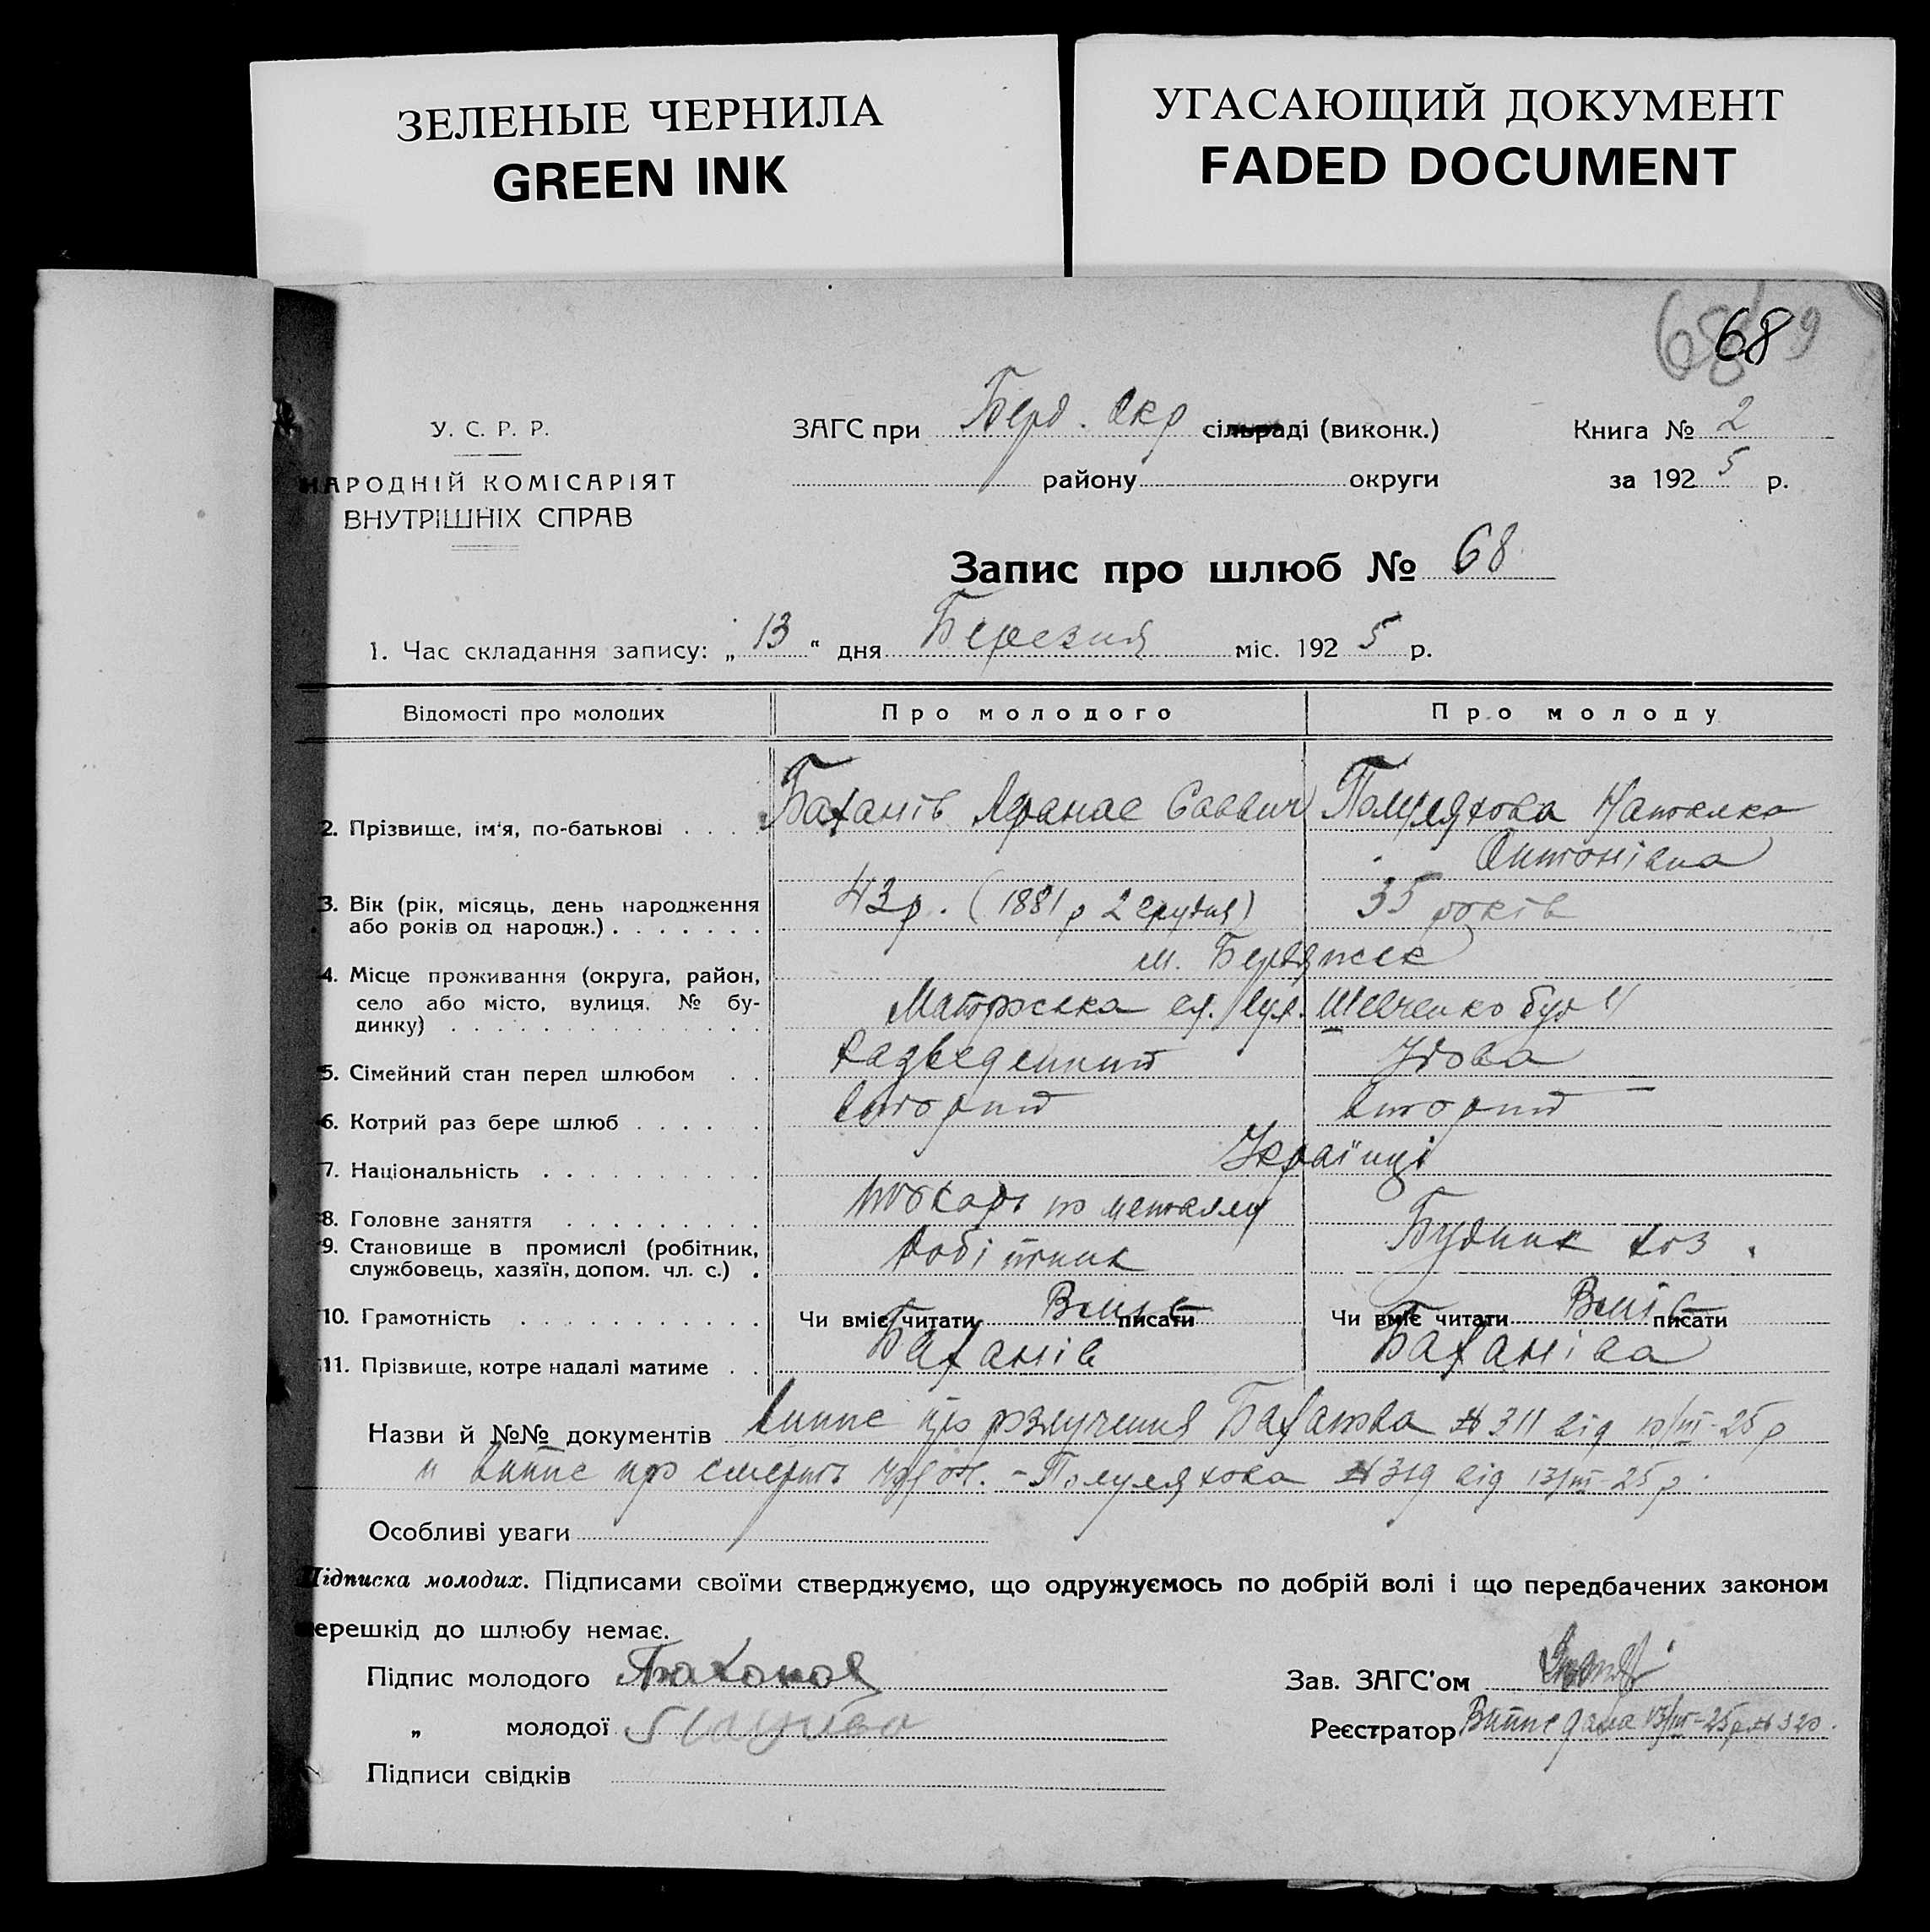 ЗЕЛЕНЫЕ ЧЕРНИЛА
GREEN INK
УГАСАЮЩИЙ ДОКУМЕНТ
FADED DOCUMENT
68
У. С. Р. Р.
НАРОДНІЙ КОМІСАРІЯТ
ВНУТРІШНІХ СПРАВ
ЗАГС при Берд. Окр сільраді (виконк.)
району округи
Книга № 2
за 1925 р.
Запис про шлюб № 68
1. Час складання запису: „13“ дня Березня міс. 1925 р.
Відомості про молодих Про молодого Про молоду
2. Прізвище, ім'я, по-батькові . . . Баханів Афанас Саввич Полуляхова
Антонівна
3. Вік (рік, місяць, день народження або років од народж.) . . . . . . . 43 р. (1881 р 2 грудня) 35 років
4. Місце проживання (округа, район, село або місто, вулиця, № будинку) . . . м. Бердянськ
Маторська вул. Шевченко буд
5. Сімейний стан перед шлюбом . . Разведенний Удова
6. Котрий раз бере шлюб . . . . . вторий вторий
7. Національність . . . . . . . . . . Українці
8. Головне заняття . . . . . . . . . токарь по металлу
9. Становище в промислі (робітник, службовець, хазяїн, допом. чл. с.) . Робітник Будник хоз.
10. Грамотність . . . . . . . . . . . Чи вміє читати Вміє писати Чи вміє читати Вміє писати
11. Прізвище, котре надалі матиме . . Баханів Баханіва
Назви й №№ документів випис про розлучення Баханова № 311 від 10/III-25 р
и випис про смерть - Полуляхова № 319 від 13/III-25 р.
Особливі уваги
Підписка молодих. Підписами своїми стверджуємо, що одружуємось по добрій волі і що передбачених законом
перешкід до шлюбу немає.
Підпис молодого Баханов
„ молодої
Підписи свідків
Зав. ЗАГС'ом
Реєстратор Випис дана 13/III-25 р № 320.